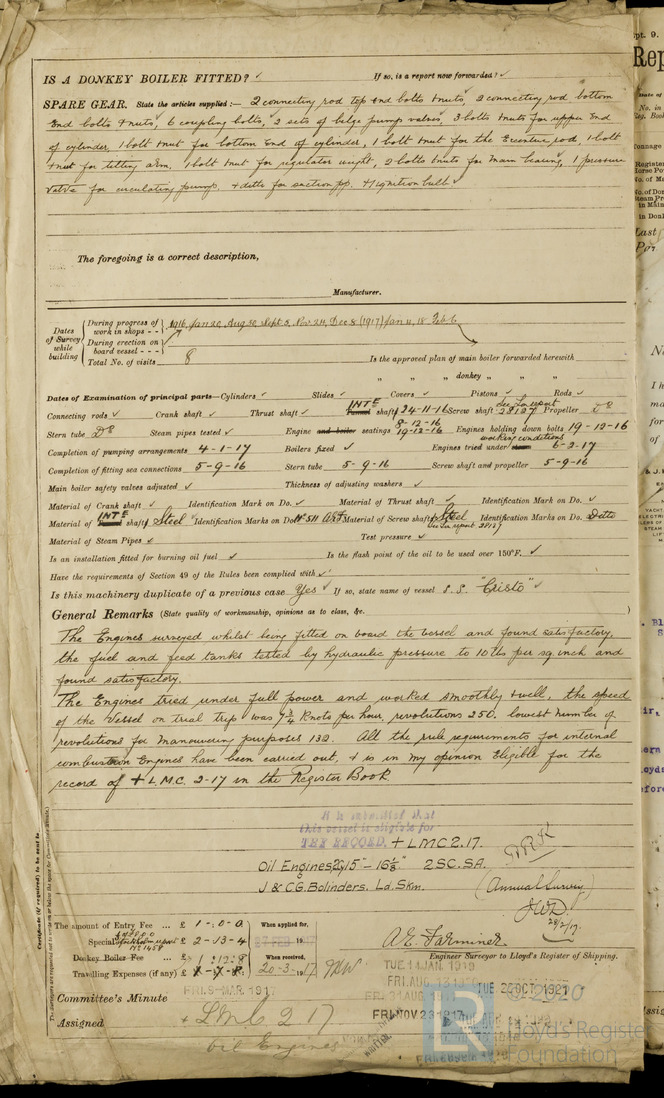 IS A DONKEY BOILER FITTED? ✓ If so, is a report now forwarded? ✓
SPARE GEAR. State the articles supplied:— 2 connecting rod top end bolts & nuts, 2 connecting rod bottom
end bolts & nuts, 6 coupling bolts, 2 sets of bilge pump valves, 3 bolts & nuts for upper end
of cylinder, 1 bolt & nut for bottom end of cylinder, 1 bolt & nut for the Eccentric rod, 1 bolt
& nut for tilting arm, 1 bolt & nut for regulator weight, 2 bolts & nuts for main bearing, 1 pressure
valve for circulating pump, & ditto for suction pp. & 1 ignition bulb
The foregoing is a correct description,
Manufacturer.
Dates of Survey while building
During progress of work in shops - - 1916, Jan 20, Aug 30, Sept 5, Nov 24, Dec 8 (1917) Jan 4, 18 Feb 6
During erection on board vessel - - -
Total No. of visits 8 Is the approved plan of main boiler forwarded herewith
" " donkey " " "
Dates of Examination of principal parts—Cylinders ✓ Slides ✓ Covers ✓ Pistons ✓ Rods ✓
Connecting rods ✓ Crank shaft ✓ Thrust shaft ✓ INTE Tunnel shaft 24-11-16 Screw shaft See Lon report 28127 Propeller Do
Stern tube Do Steam pipes tested ✓ Engine and boiler seatings 8-12-16 19-12-16 Engines holding down bolts 19-12-16
Completion of pumping arrangements 4-1-17 Boilers fixed ✓ Engines tried under steam working conditions 6-2-17
Completion of fitting sea connections 5-9-16 Stern tube 5-9-16 Screw shaft and propeller 5-9-16
Main boiler safety valves adjusted ✓ Thickness of adjusting washers ✓
Material of Crank shaft ✓ Identification Mark on Do. ✓ Material of Thrust shaft ✓ Identification Mark on Do. ✓
Material of INTE Tunnel shaft Steel Identification Marks on Do. No 511 Material of Screw shaft Steel Identification Marks on Do. Ditto
Material of Steam Pipes ✓ Test pressure ✓
Is an installation fitted for burning oil fuel ✓ Is the flash point of the oil to be used over 150°F. ✓
Have the requirements of Section 49 of the Rules been complied with ✓
Is this machinery duplicate of a previous case Yes If so, state name of vessel S.S. "Cristo"
General Remarks (State quality of workmanship, opinions as to class, &c. )
The Engines surveyed whilst being fitted on board the vessel and found satisfactory,
the fuel and feed tanks tested by hydraulic pressure to 10 lbs per sq. inch and
found satisfactory.
The Engines tried under full power and worked smoothly & well, the speed
of the vessel on trial trip was 7¾ knots per hour, revolutions 250. lowest number of
revolutions for manouvering purposes 132. All the rule requirements for internal
combustion Engines have been carried out, & is in my opinion Eligible for the
record of + L.M.C. 2-17 in the Register Book.
It is submitted that
this vessel is eligible for
THE RECORD. + LMC 2.17.
Oil Engines 2Cy 15" – 16⅛" 2SC.SA.
J & C.G. Bolinders, Ld. Skm.
(Annual Survey)
28/2/17
Certificate (if required) to be sent to
The amount of Entry Fee ... £ 1-:0-:0 When applied for,
Special £ 2-13-4 27 FEB 1917
Donkey Boiler Fee ... £ When received,
Travelling Expenses (if any) £ 20-3-17
Engineer Surveyor to Lloyd's Register of Shipping.
Committee's Minute FRI. 9-MAR. 1917
TUE 14 JAN. 1919
TUE 25 OCT. 1921
FRI. NOV 23 1917
Assigned + LMC 2 17
Oil Engines
© 2020
Lloyd's Register
Foundation